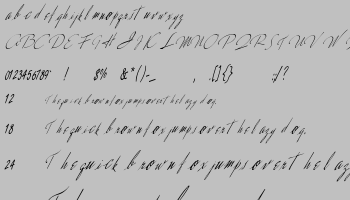 a b c d e f g h i j k l m n o p q r s t u v w x y z
A B C D E F G H I J K L M N O P Q R S T U V W X
0123456789 ! $% & * ( ) - _ , . [ ] { } : / ?
12 The quick brown fox jumps over the lazy dog.
18 The quick brown fox jumps over the lazy dog.
24 The quick brown fox jumps over the lazy